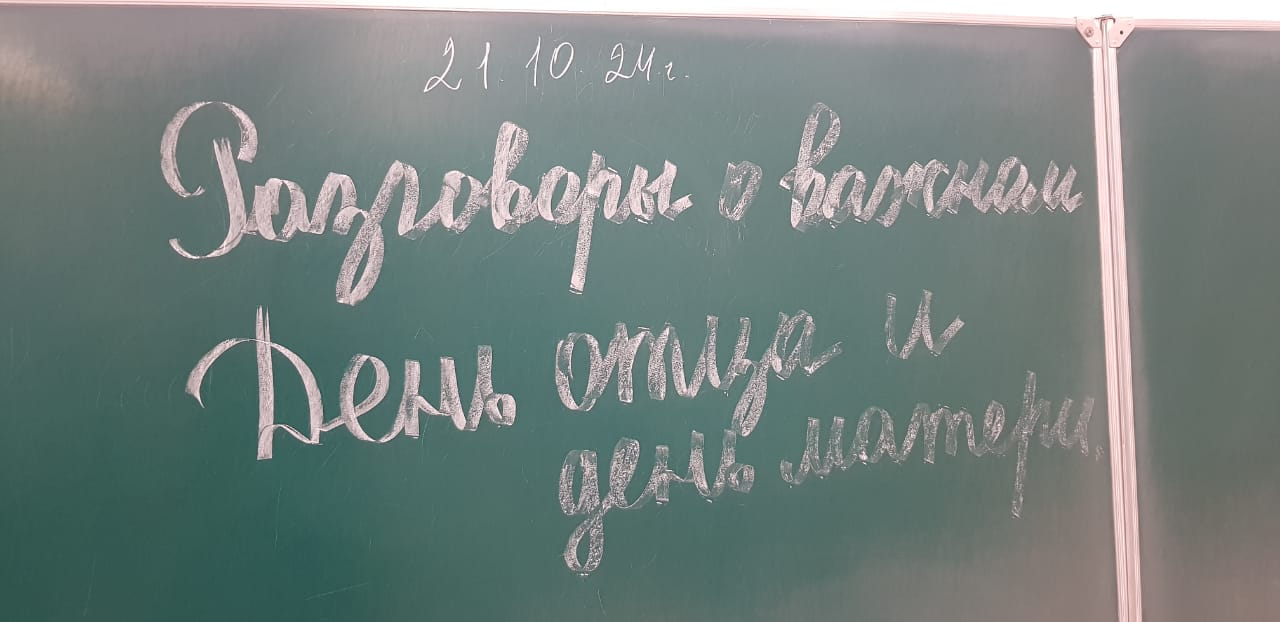 21.10.24г.
Разговоры о важном
День отца и
день матери.